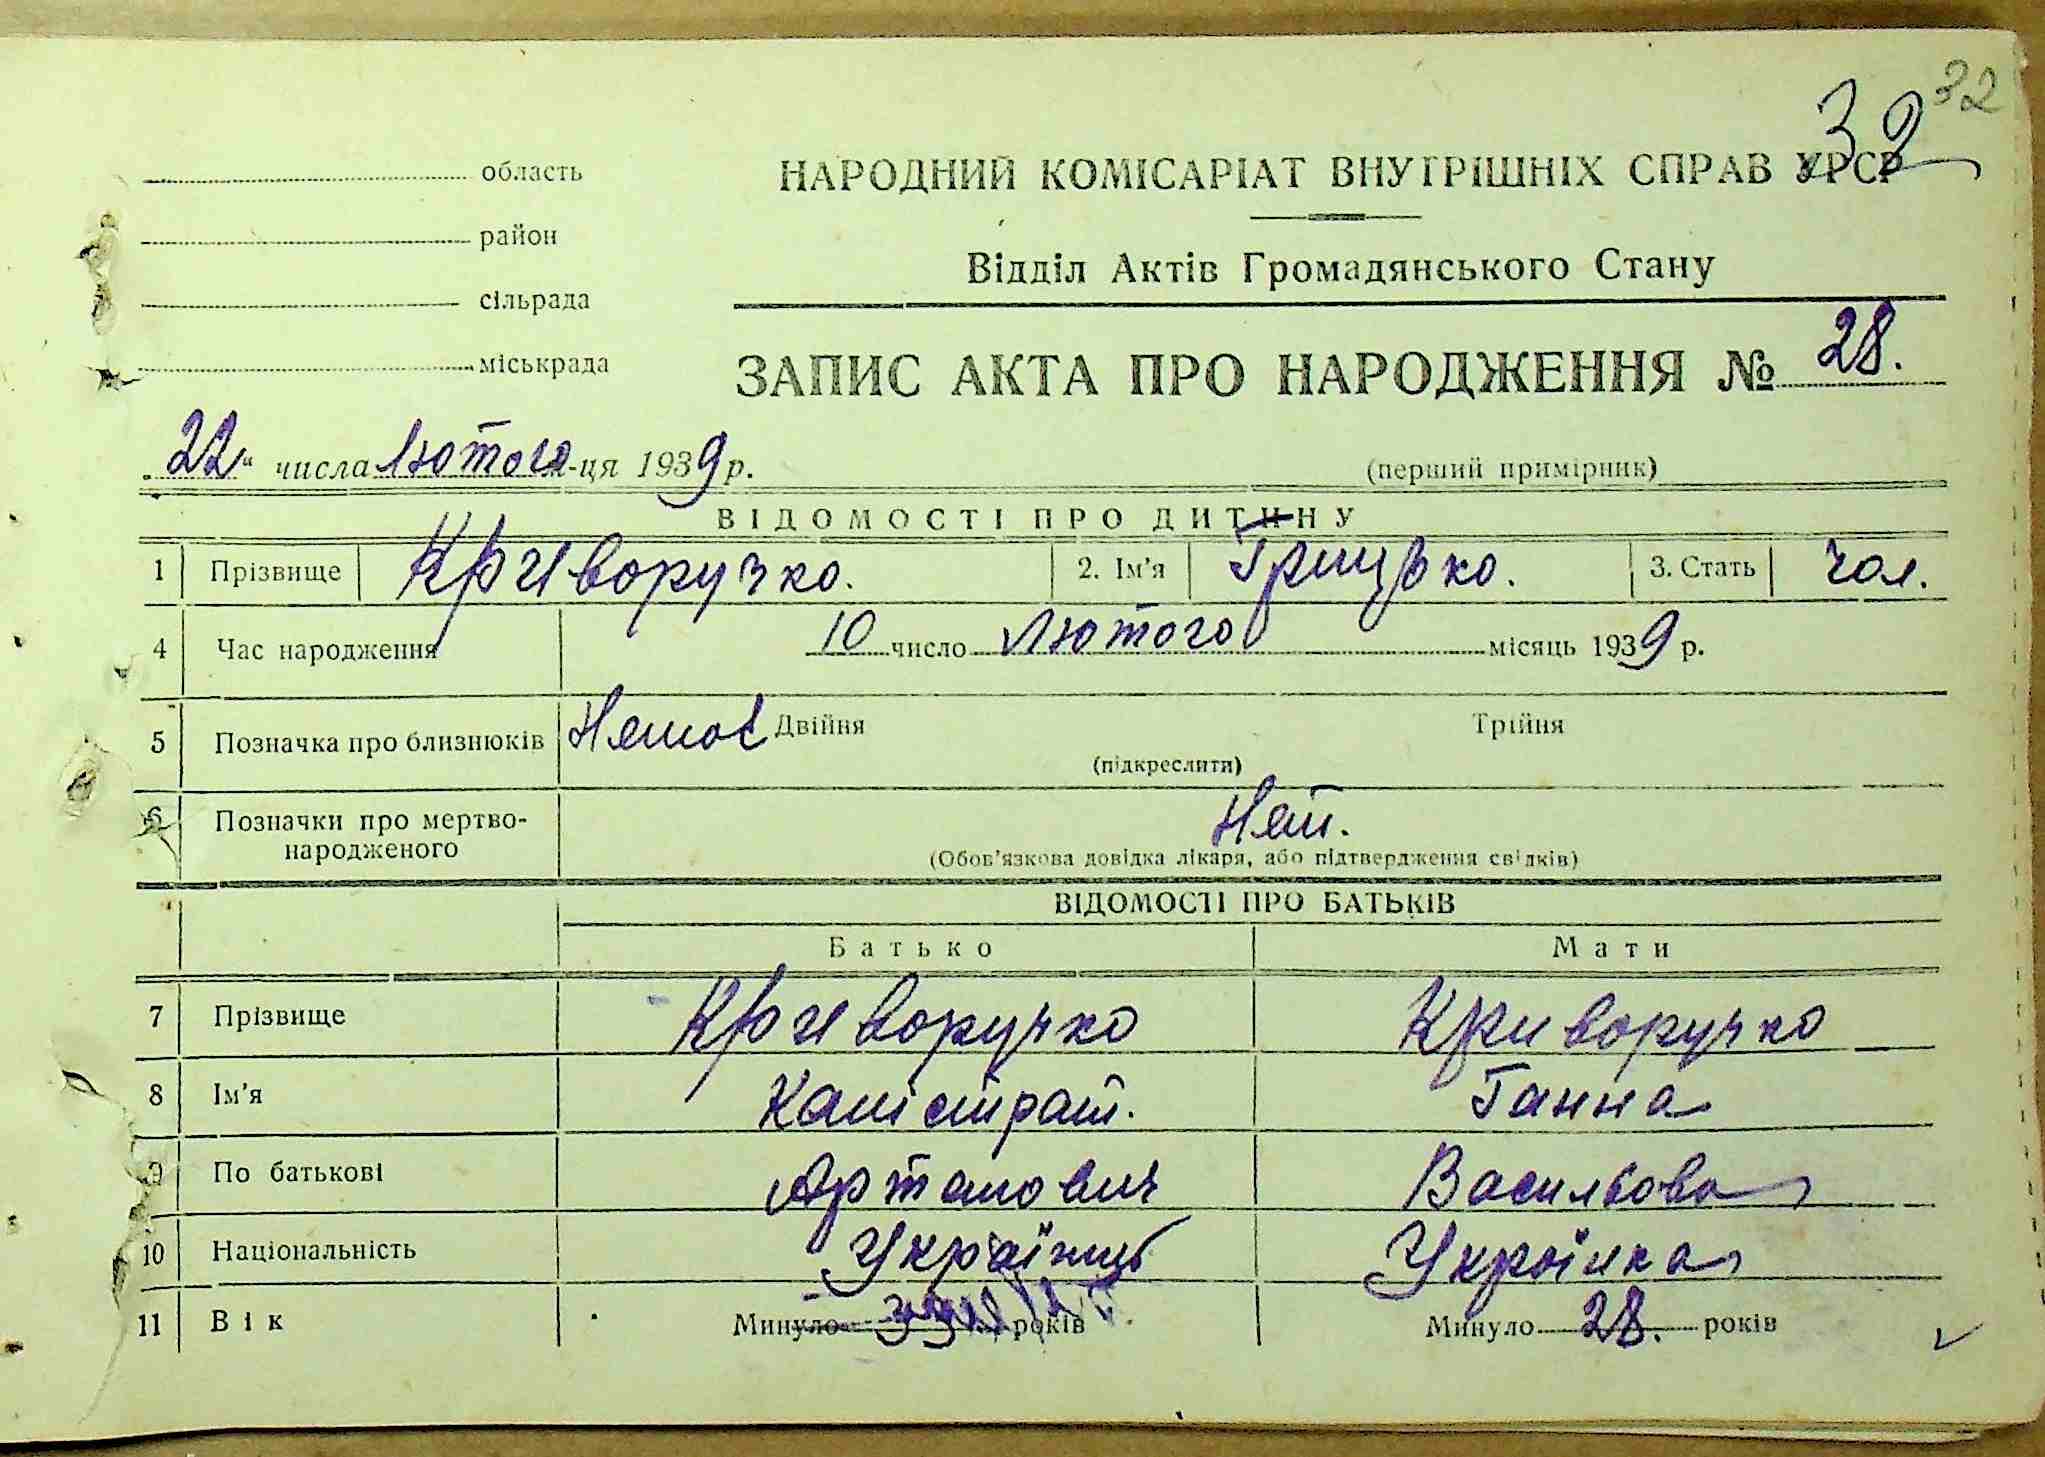 32
32
область
НАРОДНИЙ КОМІСАРІАТ ВНУТРІШНІХ СПРАВ УРСР
район
Відділ Актів Громадянського Стану
сільрада
міськрада
ЗАПИС АКТА ПРО НАРОДЖЕННЯ № 28.
„22“ числа лютого -ця 1939 р.
(перший примірник)
ВІДОМОСТІ ПРО ДИТИНУ
1 Прізвище Криворучко. 2. Ім'я Грицько. 3. Стать чол.
4 Час народження 10 число лютого місяць 1939 р.
5 Позначка про близнюків Двійня Трійня
(підкреслити)
6 Позначки про мертво-
народженого Нет.
(Обов'язкова довідка лікаря, або підтвердження свідків)
ВІДОМОСТІ ПРО БАТЬКІВ
Батько Мати
7 Прізвище Криворучко Криворучко
8 Ім'я Ганна
9 По батькові Васильовна
10 Національність Українець Українка
11 Вік Минуло 33 років Минуло 28. років